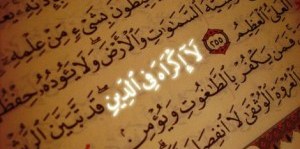 يُحِيطُونَ بِشَىْءٍ مِّنْ عِلْمِهِ
السَّمَٰوَٰتِ وَٱلْأَرْضَ وَلَا يَـُٔودُهُۥ حِفْظُهُ
ٱلْعَلِىُّ ٱلْعَظِيمُ ٢٥٥ لَآ إِكْرَاهَ فِى ٱلدِّينِ قَد تَّبَيَّنَ ٱلرُّشْ
فَمَن يَكْفُرْ بِٱلطَّٰغُوتِ وَيُؤْمِن
ٱلْعُرْوَةِ ٱلْوُثْقَىٰ لَا ٱنفِصَا